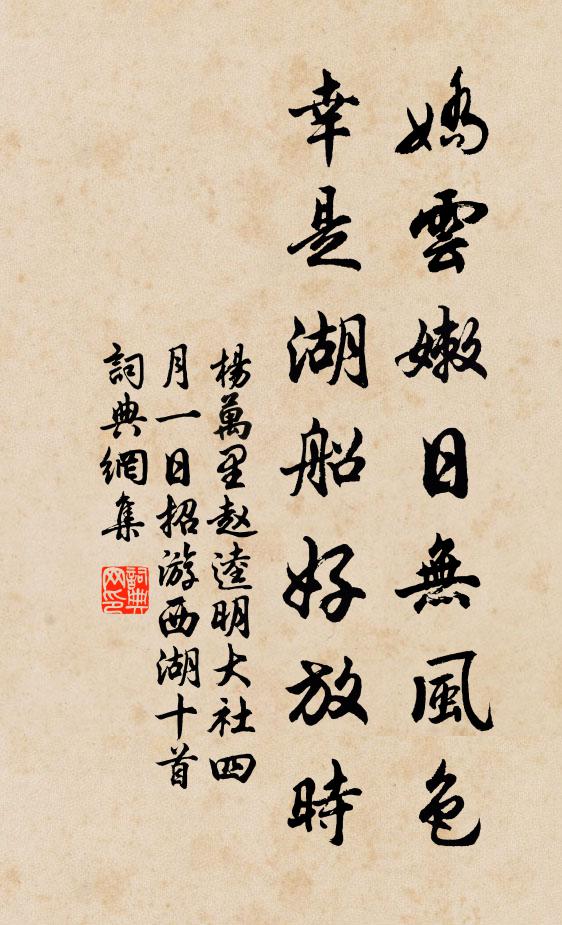 嬌雲嫩日無風色
幸是湖船好放時
楊萬里赵逵明大社四
月一日招游西湖十首
詞典網集
詞典
网印